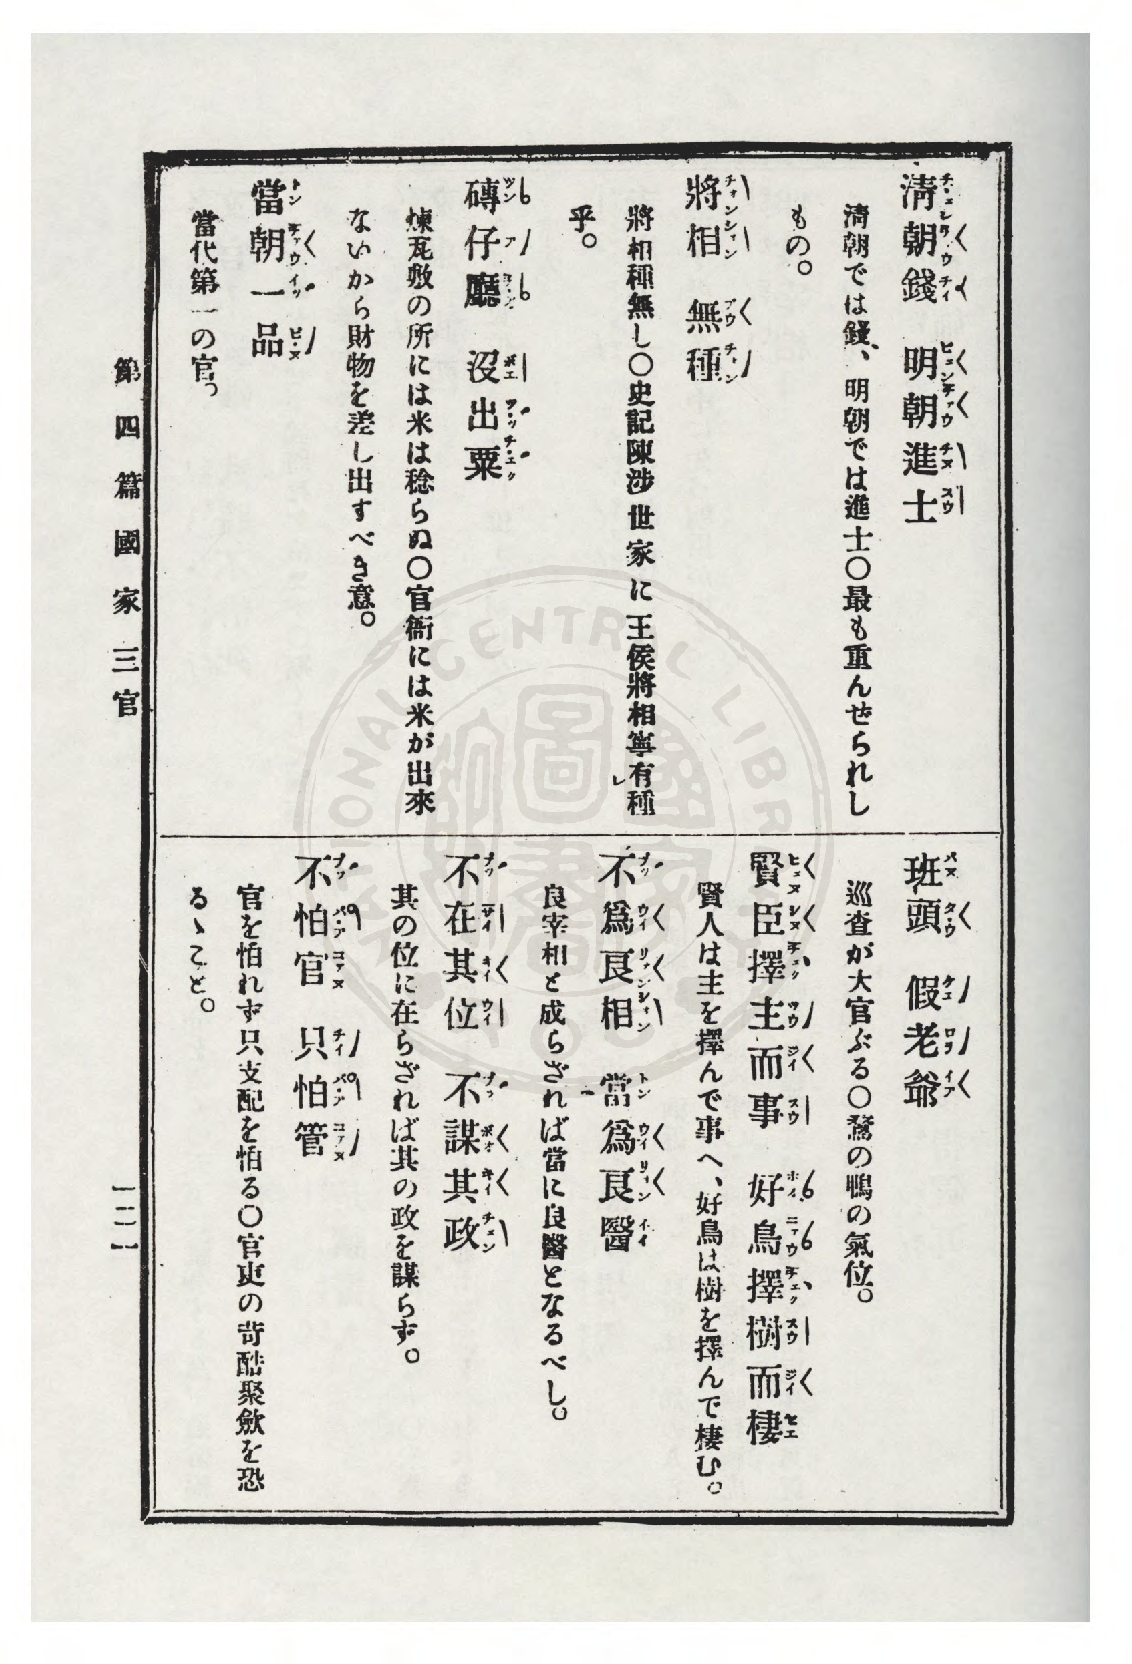 清朝錢　明朝進士
清朝では錢、明朝では進士〇最も重んせられし
もの。
將相　無種
將相種無し〇史記陳涉世家に王侯將相寧有レ種
乎。
磚仔廳　沒出粟
煉瓦敷の所には米は稔らぬ〇官衙には米が出來
ないから財物を差し出すべき意。
當朝一品
當代第一の官。
班頭　假老爺
巡査が大官ぶる〇鶩の鴨の氣位。
賢臣擇主而事　好鳥擇樹而棲
賢人は主を擇んで事へ、好鳥は樹を擇んで棲む。
不爲良相　當爲良醫
良宰相と成らざれば當に良醫となるべし。
不在其位　不謀其政
其の位に在らざれば其の政を謀らず。
不怕官　只怕管
官を怕れず只支配を怕る〇官吏の苛酷聚歛を恐
るゝこと。
第四篇國家 三官
一二一
NATIONAL CENTRAL LIBRARY